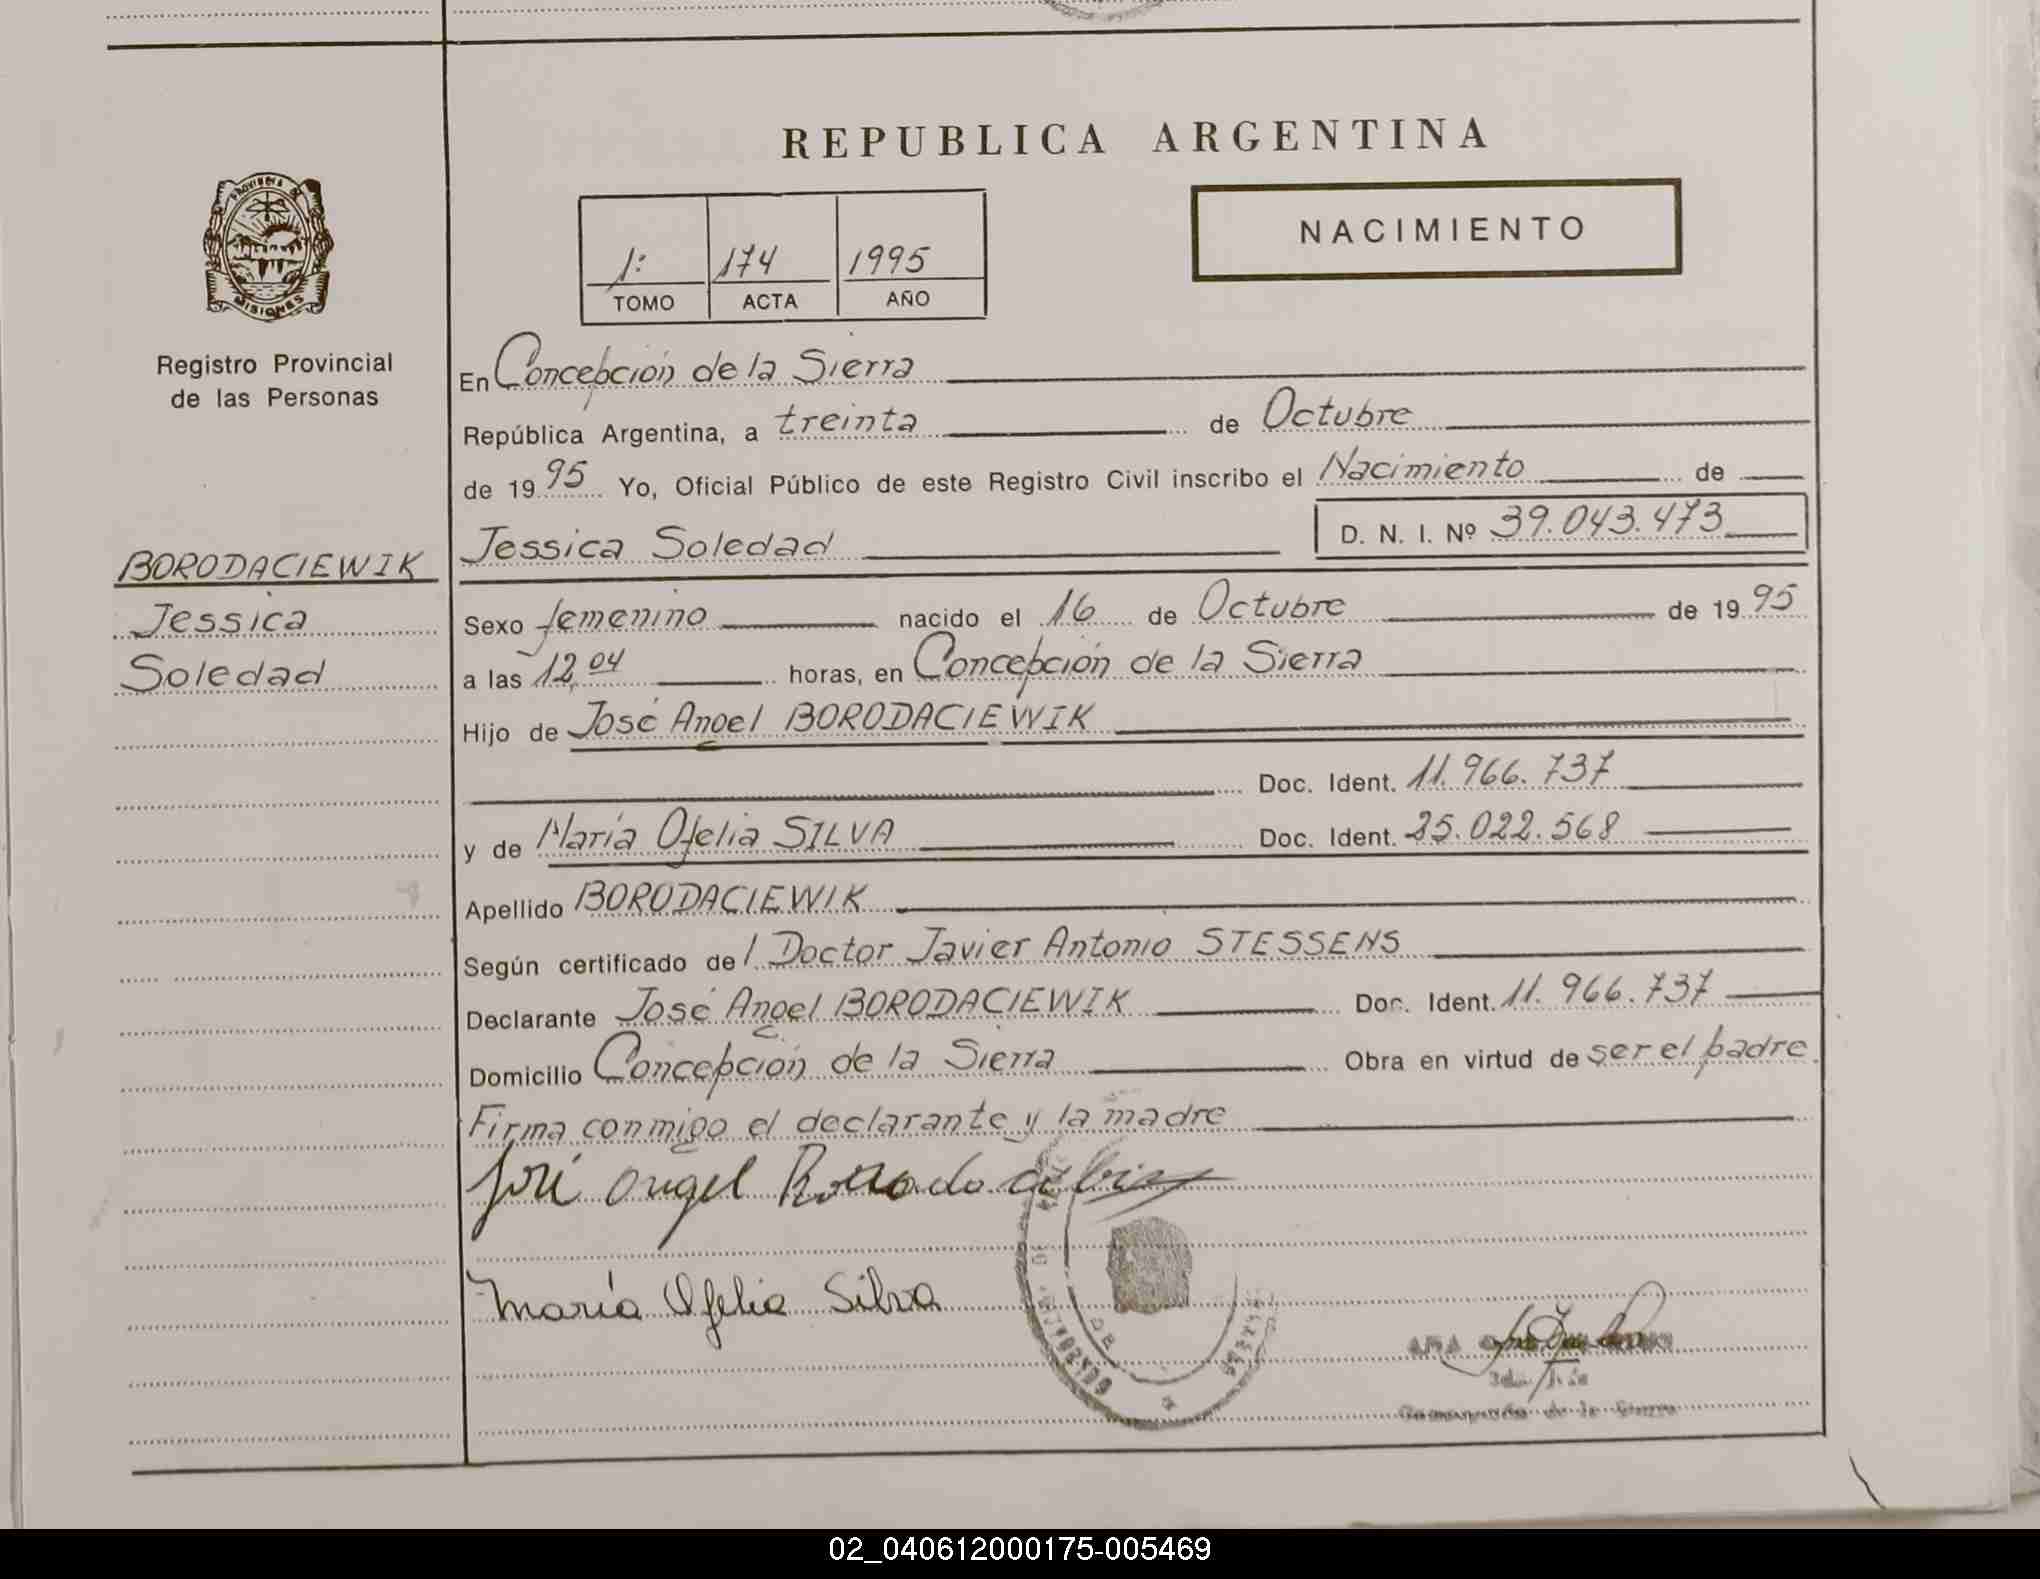 REPUBLICA ARGENTINA
PROVINCIA DE
MISIONES
Registro Provincial
de las Personas
NACIMIENTO
1: 174 1995
TOMO ACTA AÑO
En Concepción de la Sierra
República Argentina, a treinta de Octubre
de 1995 Yo, Oficial Público de este Registro Civil inscribo el Nacimiento de
Jessica Soledad D. N. I. Nº 39.043.473
BORODACIEWIK
Jessica
Soledad
Sexo femenino nacido el 16 de Octubre de 1995
a las 12,04 horas, en Concepción de la Sierra
Hijo de José Angel BORODACIEWIK
Doc. Ident. 11.966.737
y de María Ofelia SILVA Doc. Ident. 25.022.568
Apellido BORODACIEWIK
Según certificado del Doctor Javier Antonio STESSENS
Declarante José Angel BORODACIEWIK Doc. Ident. 11.966.737
Domicilio Concepción de la Sierra Obra en virtud de ser el padre
Firma conmigo el declarante y la madre
José Angel
María Ofelia Silva
de la Sierra
02_040612000175-005469